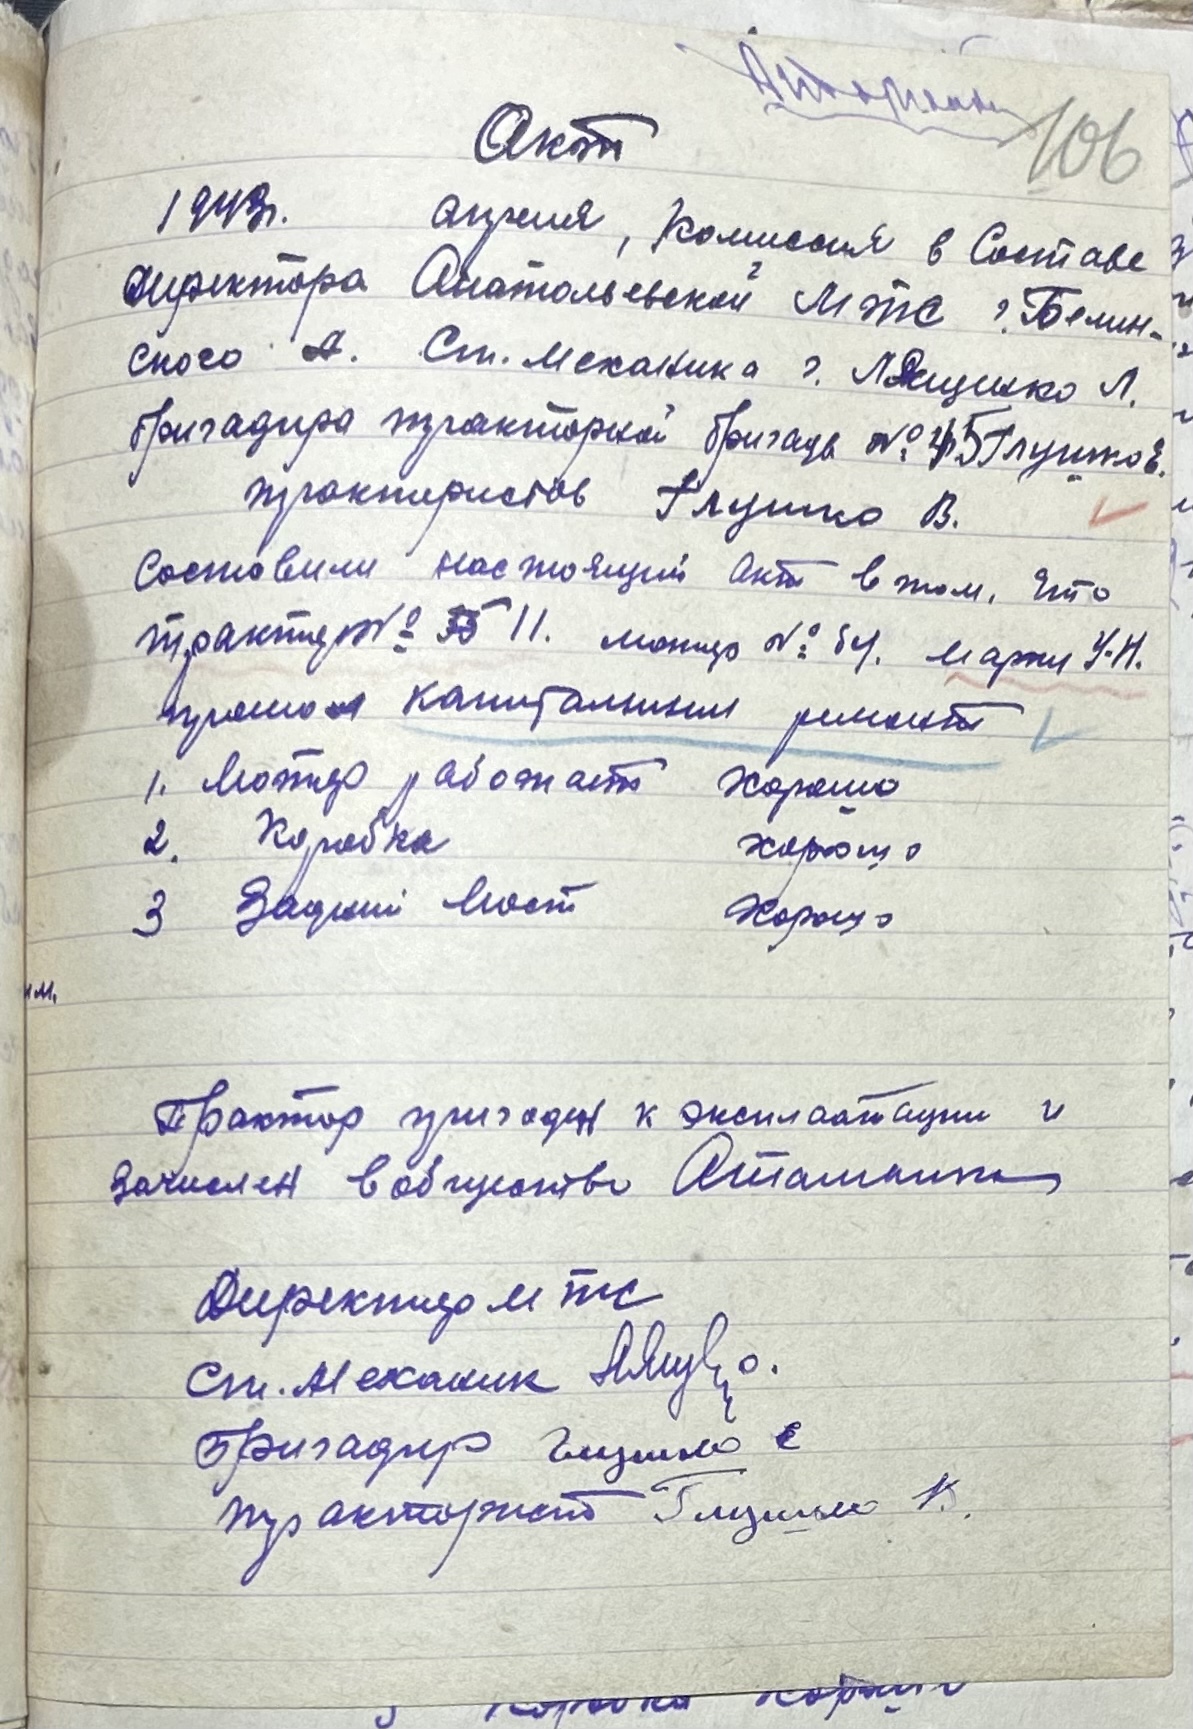 106
Акт
1943г. апреля, Комиссия в Составе
Директора Анатольевской МТС г. Белин-
ского А. Ст. Механика г. Лящинко Л.
бригадира тракторной бригады № 45 Глушко Е.
трактористов Глушко В.
Составили настоящий Акт в том, что
трактор № 11. мотор № 64. марки У-Н.
прошол капитальный ремонт
1. Мотор работает хорошо
2. Коробка хорошо
3 Задний Мост хорошо
Трактор пригоден к эксплоатации и
зачислен в общество
Директор МТС
Ст. Механик
Бригадир Глушко Е
тракторист Глушко В.
коробка